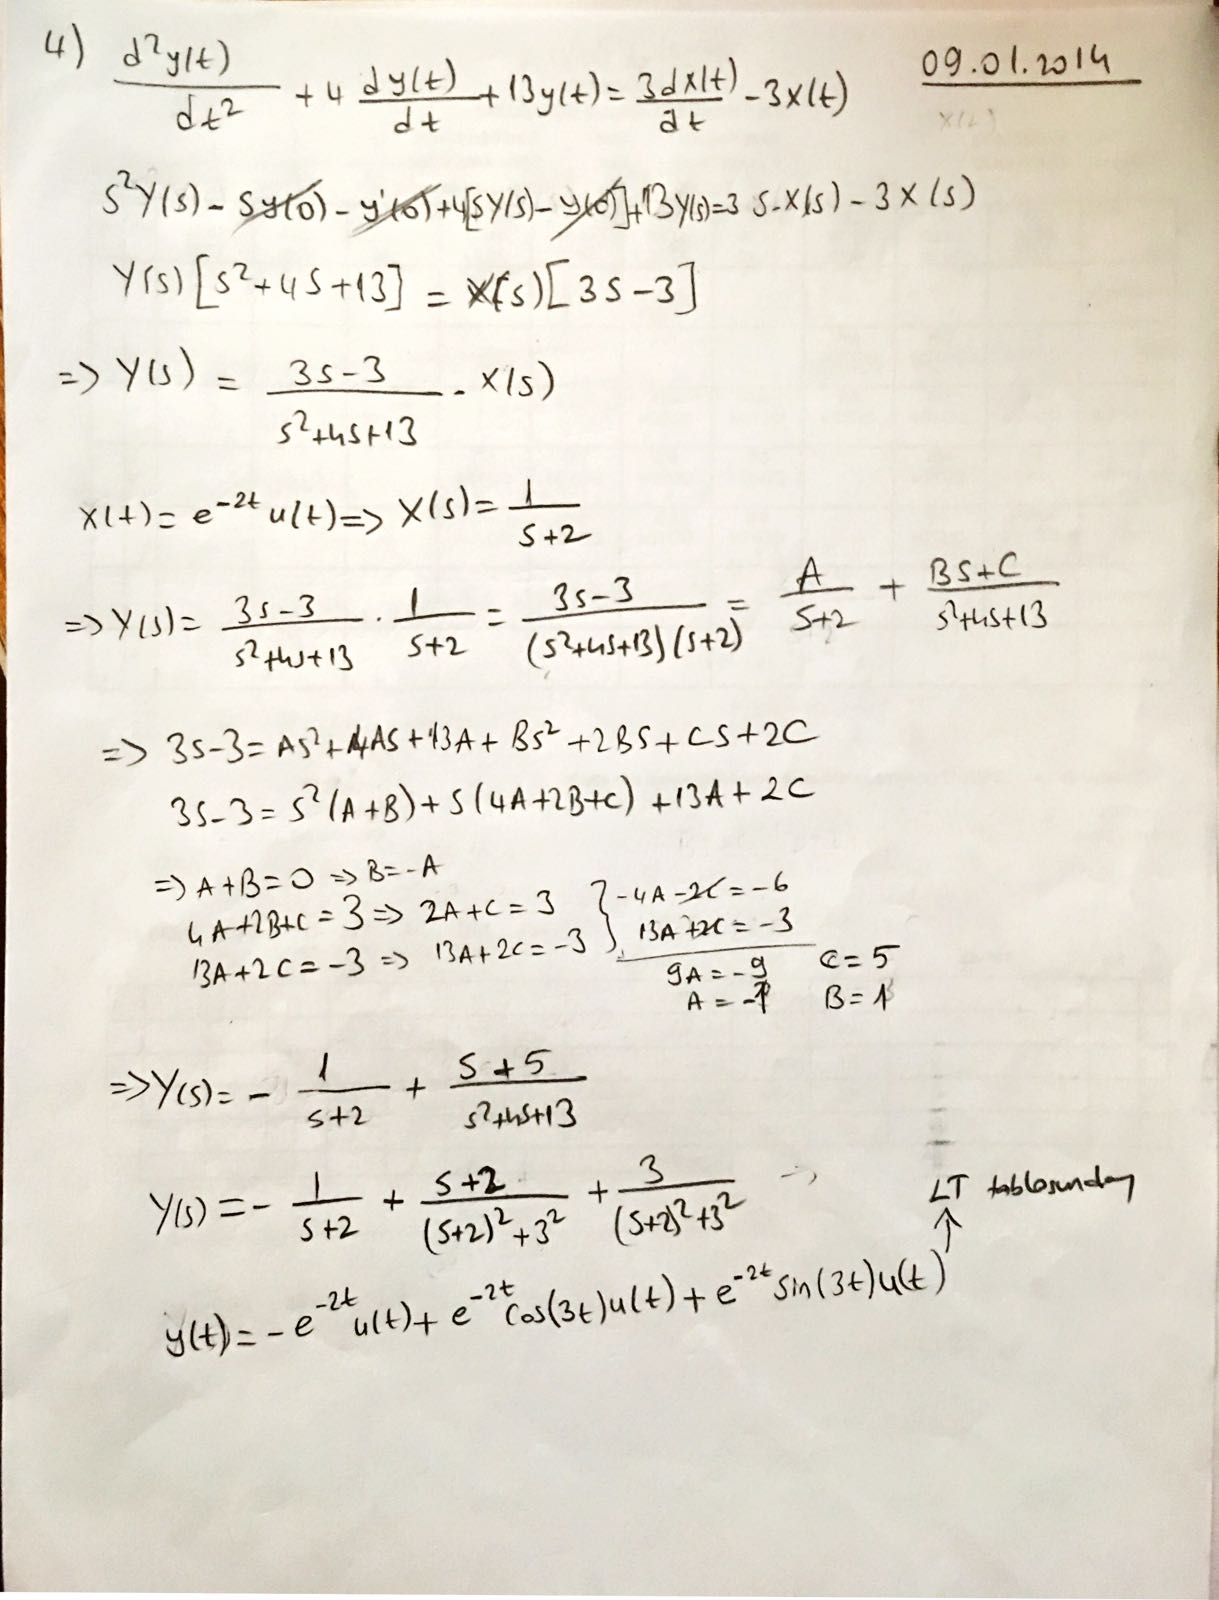 4) d²y(t)/dt² + 4 dy(t)/dt + 13y(t) = 3dx(t)/dt - 3x(t)
09.01.2014
x(t)
s²Y(s) - sy(0) - y'(0) + 4[sY(s) - y(0)] + 13Y(s) = 3 s.X(s) - 3X(s)
Y(s)[s²+4s+13] = X(s)[3s-3]
=> Y(s) = (3s-3)/(s²+4s+13) . X(s)
x(t) = e^(-2t) u(t) => X(s) = 1/(s+2)
=> Y(s) = (3s-3)/(s²+4s+13) . 1/(s+2) = (3s-3)/((s²+4s+13)(s+2)) = A/(s+2) + (Bs+C)/(s²+4s+13)
=> 3s-3 = As²+4As+13A+Bs²+2Bs+Cs+2C
3s-3 = s²(A+B)+s(4A+2B+C)+13A+2C
=> A+B=0 => B=-A
4A+2B+C=3 => 2A+C=3 } -4A-2C=-6
13A+2C=-3 => 13A+2C=-3 } 13A+2C=-3
9A=-9 C=5
A=-1 B=1
=> Y(s) = - 1/(s+2) + (s+5)/(s²+4s+13)
Y(s) = - 1/(s+2) + (s+2)/((s+2)²+3²) + 3/((s+2)²+3²) ->
LT tablosundan
y(t) = -e^(-2t) u(t) + e^(-2t) cos(3t)u(t) + e^(-2t) sin(3t)u(t)